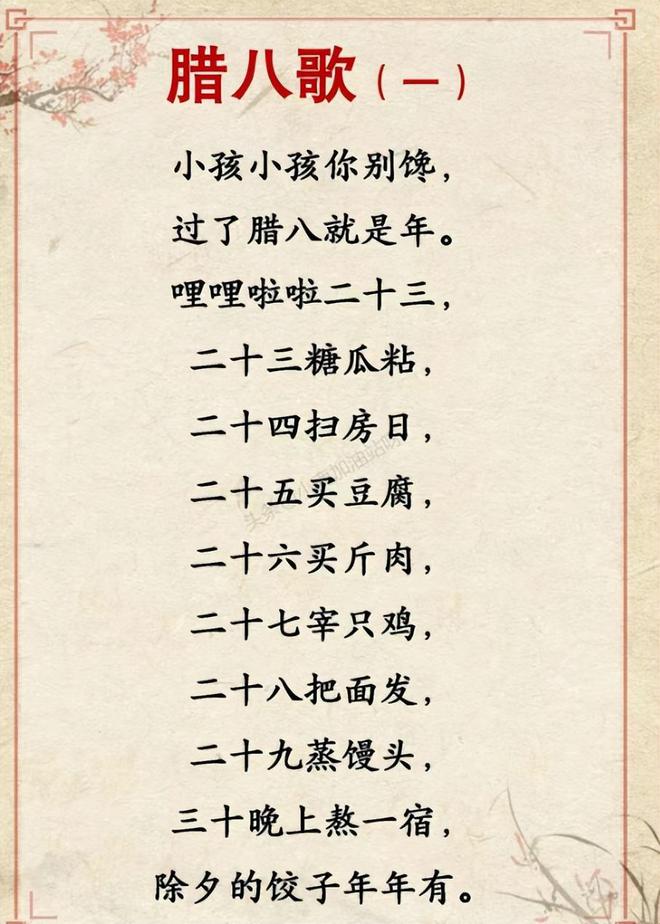 腊八歌（一）
小孩小孩你别馋，
过了腊八就是年。
哩哩啦啦二十三，
二十三糖瓜粘，
二十四扫房日，
二十五买豆腐，
二十六买斤肉，
二十七宰只鸡，
二十八把面发，
二十九蒸馒头，
三十晚上熬一宿，
除夕的饺子年年有。